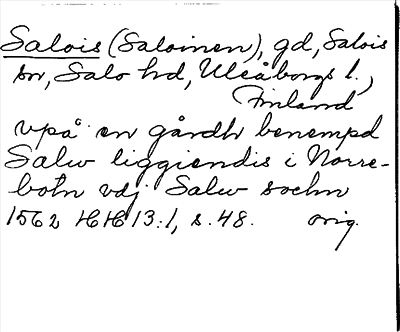 Salois (Saloinen), gd, Salois
sn, Salo hd, Uleåborgs l.,
Finland
vpå en gårdh benempd
Salw liggiendis i Norre-
botn vdj Salw sochn
1562 HH 13:1, s. 48. orig.